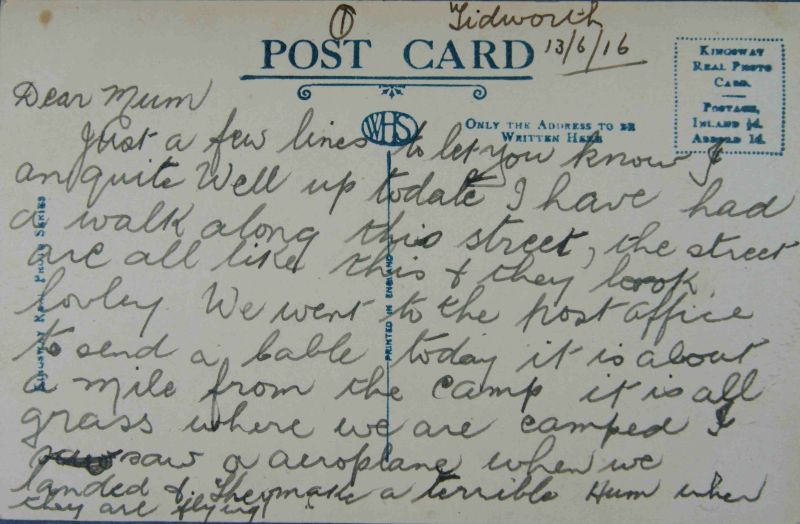 ①
Tidworth
13/6/16
POST CARD
KINGSWAY
REAL PHOTO
CARD.
POSTAGE,
INLAND ½d.
ABROAD 1d.
WHS
ONLY THE ADDRESS TO BE
WRITTEN HERE
Dear Mum
Just a few lines to let you know I
am quite Well up todate I have had
a walk along this street, the street
are all like this & they look
lovley We went to the post office
to send a cable today it is about
a mile from the camp it is all
grass where we are camped I
saw a aeroplane when we
landed & they make a terrible Hum when
they are flying
KINGSWAY REAL PHOTO SERIES
PRINTED IN ENGLAND